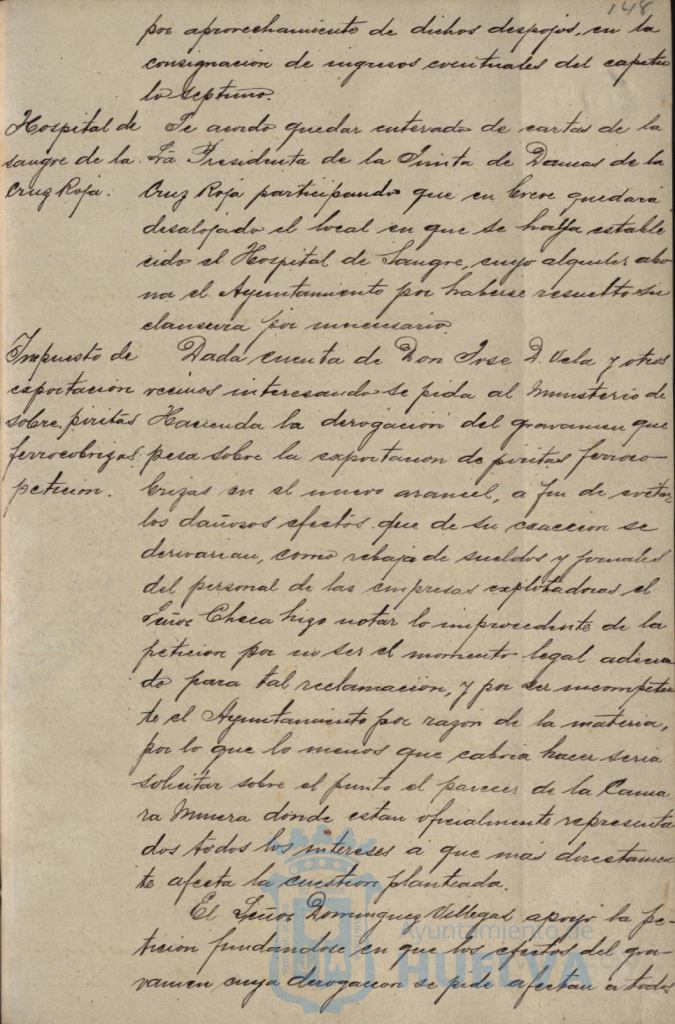 148
por aprovechamiento de dichos despojos, en la
consignacion de ingresos eventuales del capitu
lo septimo.
Hospital de
sangre de la
Cruz Roja.
Se acordo quedar enterado de cartas de la
Sra Presidenta de la Junta de Damas de la
Cruz Roja participando que en breve quedará
desalojado el local en que se halla estable
cido el Hospital de Sangre, cuyo alquiler abo
na el Ayuntamiento por haberse resuelto su
clausura por innecesario.
Impuesto de
exportación
sobre piritas
ferrocobrizas
petición.
Dada cuenta de Don Jose D. Vela y otros
vecinos interesando se pida al Ministerio de
Hacienda la derogación del gravamen que
pesa sobre la exportacion de piritas ferroco-
brizas en el nuevo arancel, a fin de evitar
los dañosos efectos que de su exaccion se
derivarian, como rebaja de sueldos y jornales
del personal de las empresas explotadoras el
Señor Checa hizo notar lo improcedente de la
peticion por no ser el momento legal adecua
do para tal reclamación, y por ser incompeten
te el Ayuntamiento por razón de la materia,
por lo que lo menos que cabria hacer seria
solicitar sobre el punto el parecer de la Cama
ra Minera donde estan oficialmente representa
dos todos los intereses a que más directamen
te afecta la cuestion planteada.
El Señor Dominguez Villegas apoyó la pe-
ticion fundandose en que los efectos del gra-
vamen cuya derogacion se pide afectan a todos
Ayuntamiento de
HUELVA